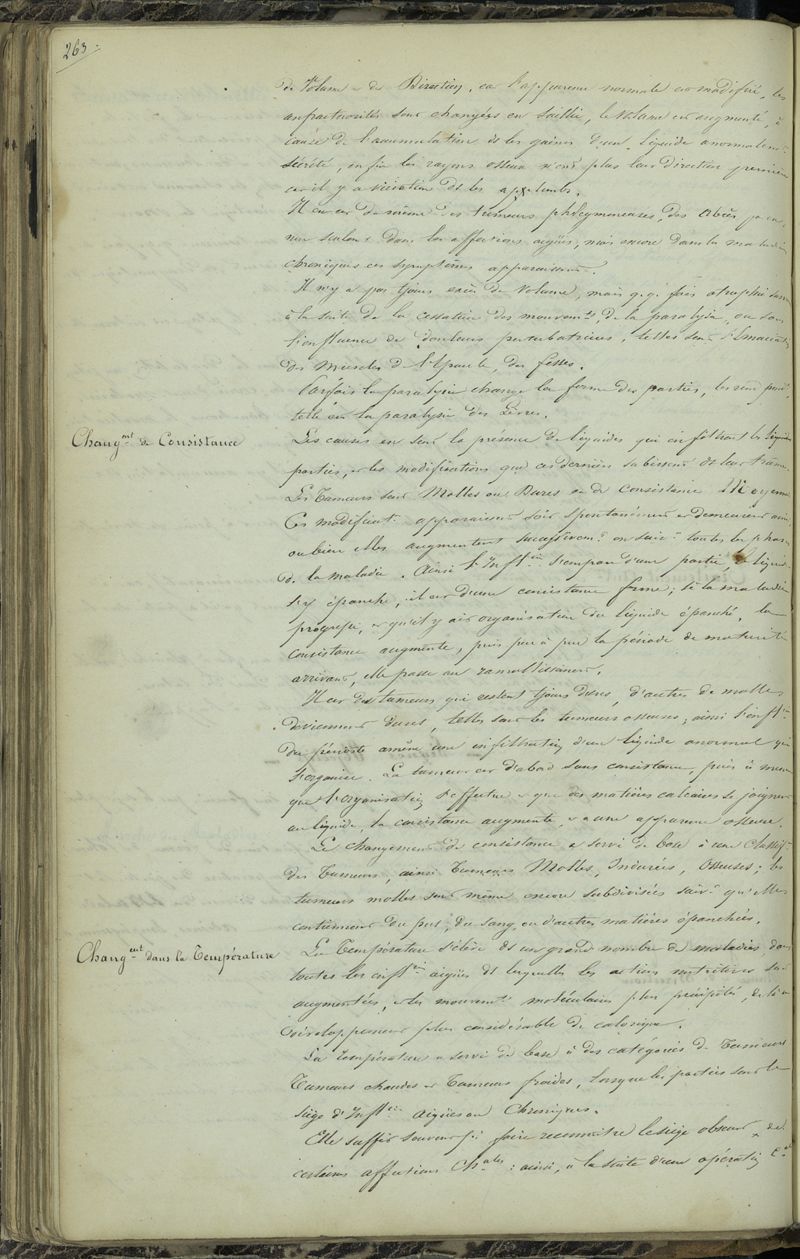 263.
de Volume et de Direction, car l'apparence normale est modifiée, les
anfractuosités sont changées en saillie, le volume est augmenté, à
cause de l'accumulation ds les gaines d'un liquide anormalemt
sécrété, enfin les rayons osseux n'ont plus leur direction première
car il y a déviation ds les
Il en est de même des tumeurs phlegmoneuses, des Abcès,
non seulemt dans les affections aigües, mais encore dans les maladies
chroniques ces symptômes apparaissent.
Il n'y a pas tjours excès de Volume, mais q.q. fois atrophie
à la suite de la cessation des mouvemts, de la paralysie, ou sous
l'influence de douleurs perturbatrices, telles sont l'Emaciation
des Muscles de l'Epaule, des fesses.
Parfois la paralysie change la forme des parties,
telle est la paralysie des Lèvres.
Changmt de Consistance
Les causes en sont la présence de liquides qui infiltrent les
parties, et les modifications que ces dernières subissent ds leur trame.
Les Tumeurs sont Molles ou Dures ou de consistance Moyenne
Ces modificat. apparaissent soit spontanément et demeurent ainsi,
ou bien elles augmentent successivemt en suivt toutes les phases
de la maladie. Ainsi l'Inflon s'empare d'une partie, le liquide
s'y épanche, il est d'une consistance ferme; si la maladie
progresse, et qu'il y ait organisation du liquide épanché, la
consistance augmente, puis peu à peu la période de maturité
arrivant, elle passe au ramollissement.
Il est des tumeurs qui restent tjours dures, d'autres de molles
deviennent dures, telles sont les tumeurs osseuses; ainsi l'inflon
du périoste amène une infiltration d'un liquide anormal qui
s'organise. La tumeur est d'abord sans consistance, puis à mesure
que l'organisation s'effectue et que des matières calcaires se joignent
au liquide, la consistance augmente, et a une apparence osseuse.
Le changement de consistance a servi de base à une Classift.
des Tumeurs, ainsi Tumeurs Molles, Indurées, Osseuses; les
tumeurs molles sont même encore subdivisées suivt qu'elles
contiennent du pus, du sang, ou d'autres matières épanchées.
Changemt dans la Température
La Température s'élève ds un grand nombre de maladies, dans
toutes les inflons aigües ds lesquelles les actions nutritives sont
augmentées, et les mouvemts moléculaires plus précipités, de là un
développement plus considérable de calorique.
La température a servi de base à des catégories de Tumeurs
Tumeurs chaudes et Tumeurs froides, lorsque les parties sont le
siège d'Inflons aigües ou Chroniques.
Elle suffit souvent pr faire reconnaître le siège obscur de
certaines affections Chales : ainsi, à la suite d'une opération